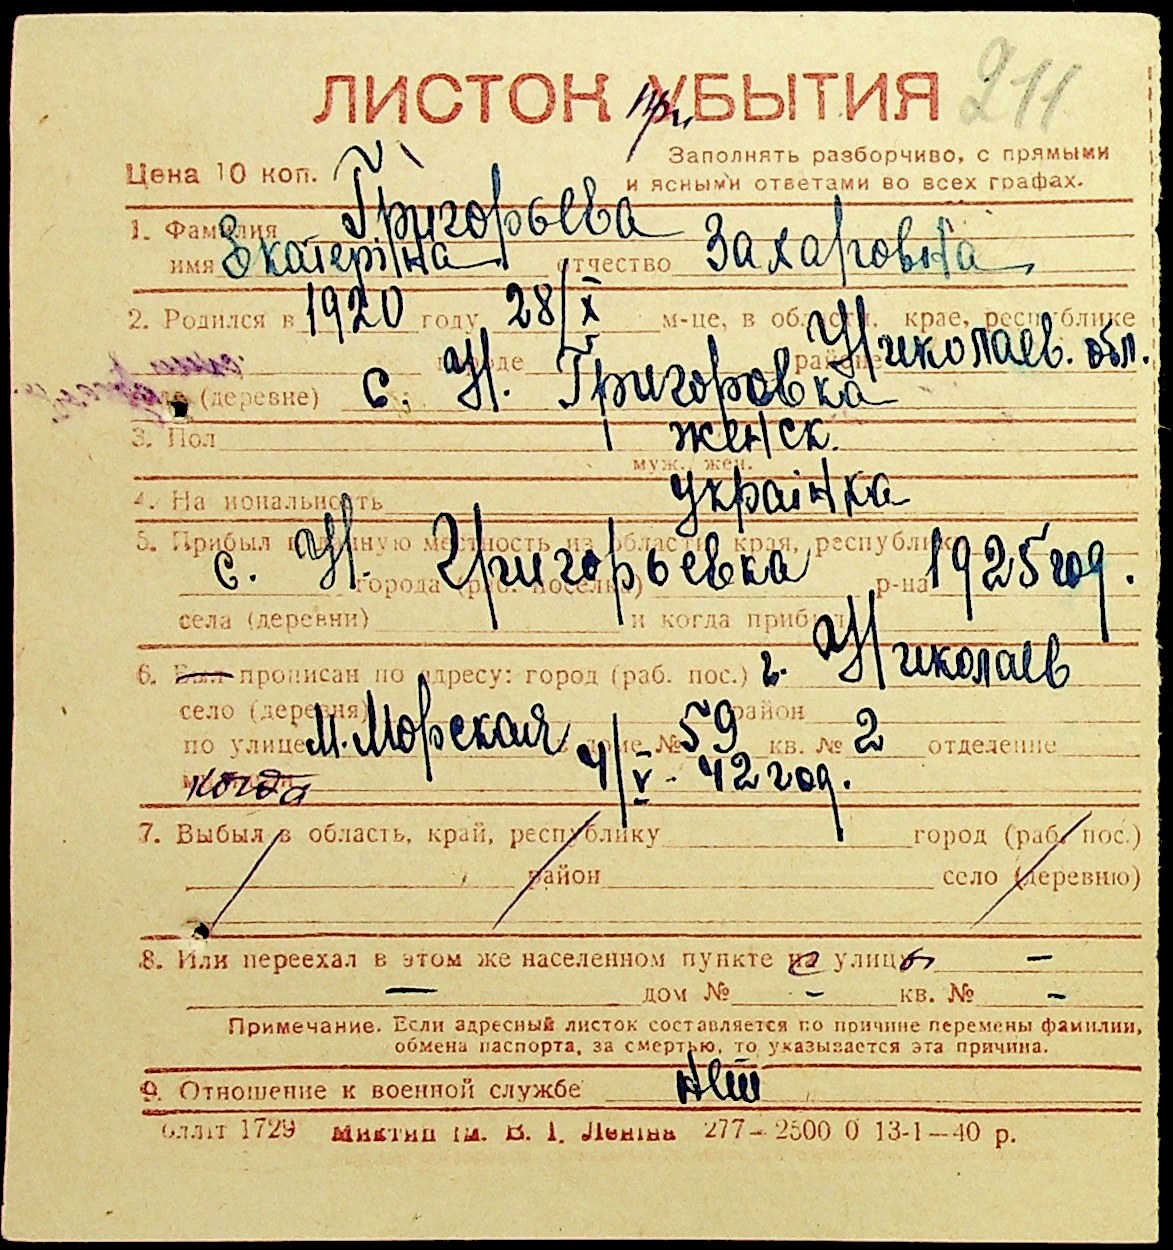 ЛИСТОК при УБЫТИЯ 211
Заполнять разборчиво, с прямыми
Цена 10 коп. и ясными ответами во всех графах.
1. Фамилия Григорьева
имя Екатеріна отчество Захаровна
2. Родился в 1920 году 28/X м-це, в области, крае, республике
Николаев. обл.
городе районе
селе (деревне) с. Н. Григоровка
3. Пол женск.
муж., жен.
4. Национальность українка
5. Прибыл в данную местность из области, края, республики
с. Н. Григорьевка 1925 год.
города (раб. поселка) р-на
села (деревни) и когда прибыл
6. Был прописан по адресу: город (раб. пос.) г. Николаев
село (деревня) район
по улице М. Морская в доме № 59 кв. № 2 отделение
когда 4/V - 42 год.
7. Выбыл в область, край, республику город (раб. пос.)
район село (деревню)
8. Или переехал в этом же населенном пункте с улицы —
— дом № – кв. № –
Примечание. Если адресный листок составляется по причине перемены фамилии,
обмена паспорта, за смертью, то указывается эта причина.
9. Отношение к военной службе нет
блліт 1729 Миктип ім. В. І. Леніна 277–2500 0 13-1–40 р.